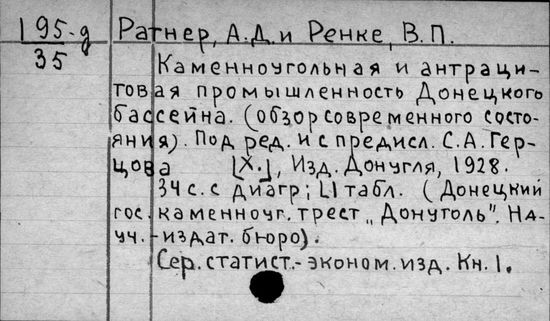 195-д Ратнер, А.Д. и Ренке, В.П.
35
Каменноугольная и антраци-
товая промышленность Донецкого
бассейна. (обзор современного состо-
яния). Под ред. и с предисл. С.А. Гер-
цова [Х.], Изд. Донугля, 1928.
34 с. с диагр; LI табл. (Донецкий
гос. каменноуг. трест „Донуголь". На-
уч.-издат. бюро).
Сер. статист.-эконом. изд. Кн. 1.